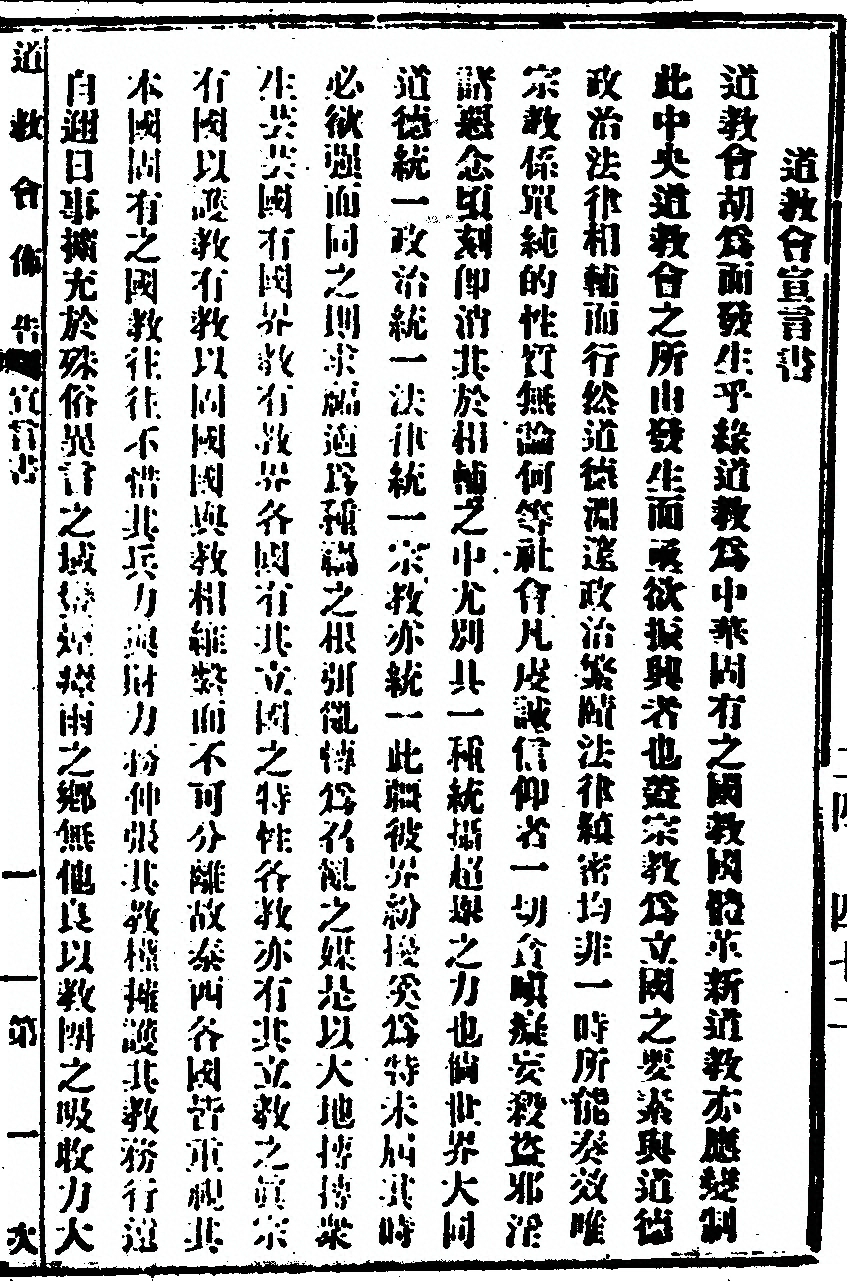 道教會宣言書
道教會胡爲而發生乎緣道教爲中華固有之國教國體革新道教亦應變制
此中央道教會之所由發生而亟欲振興者也蓋宗教爲立國之要素與道德
政治法律相輔而行然道德淵邃政治繁賾法律縝密均非一時所能奏效唯
宗教係單純的性質無論何等社會凡虔誠信仰者一切貪瞋癡妄殺盜邪淫
諸惡念頃刻卽消其於相輔之中尤別具一種統攝超舉之力也倘世界大同
道德統一政治統一法律統一宗教亦統一此疆彼界紛擾奚爲特未屆其時
必欲强而同之則求福適爲種禍之根弭亂轉爲召亂之媒是以大地摶摶衆
生芸芸國有國界教有教界各國有其立國之特性各教亦有其立教之眞宗
有國以護教有教以固國國與教相維繫而不可分離故泰西各國皆重視其
本國固有之國教往往不惜其兵力與財力務伸張其教權擁護其教務行遠
自邇日事擴充於殊俗異言之域蠻煙瘴雨之鄉無他良以教團之吸收力大
道教會佈告 宣言書 一 一第一次
二四 四七二